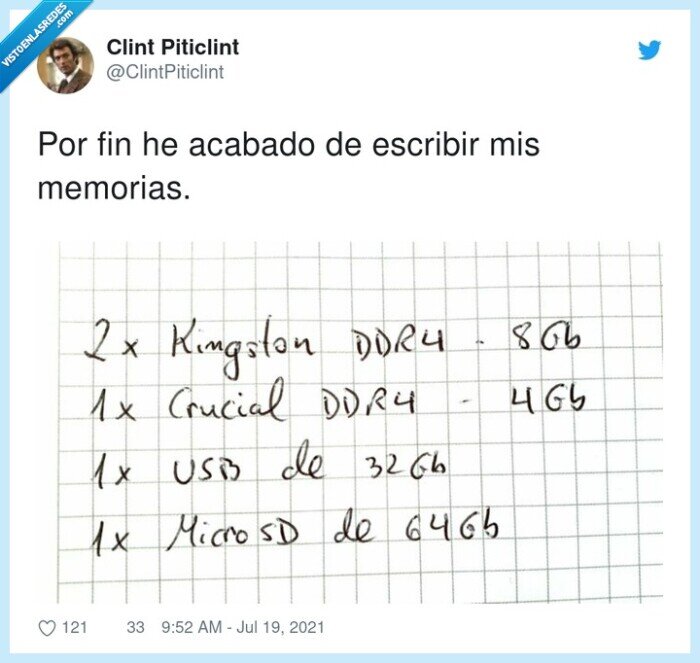 VISTOENLASREDES
.com
Clint Piticlint
@ClintPiticlint
Por fin he acabado de escribir mis
memorias.
2x Kingston DDR4 - 8Gb
1x Crucial DDR4 - 4Gb
1x USB de 32Gb
1x Micro SD de 64Gb
121 33 9:52 AM - Jul 19, 2021